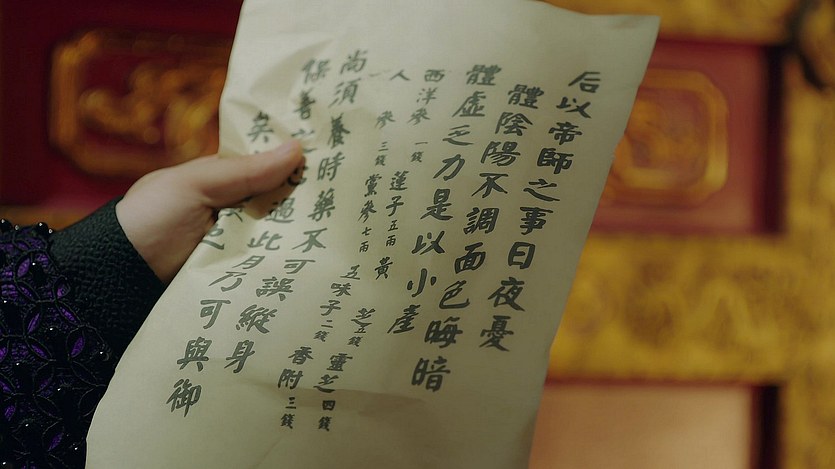 后以帝師之事日夜憂
體陰陽不調面色晦暗
體虛乏力是以小產
西洋參 一錢 蓮子五兩 黃芝五錢 靈芝四錢
人參 三錢 黨參七兩 五味子二錢 香附三錢
尚須養時藥不可誤縱身
保善之過此月乃可與御
矣 色